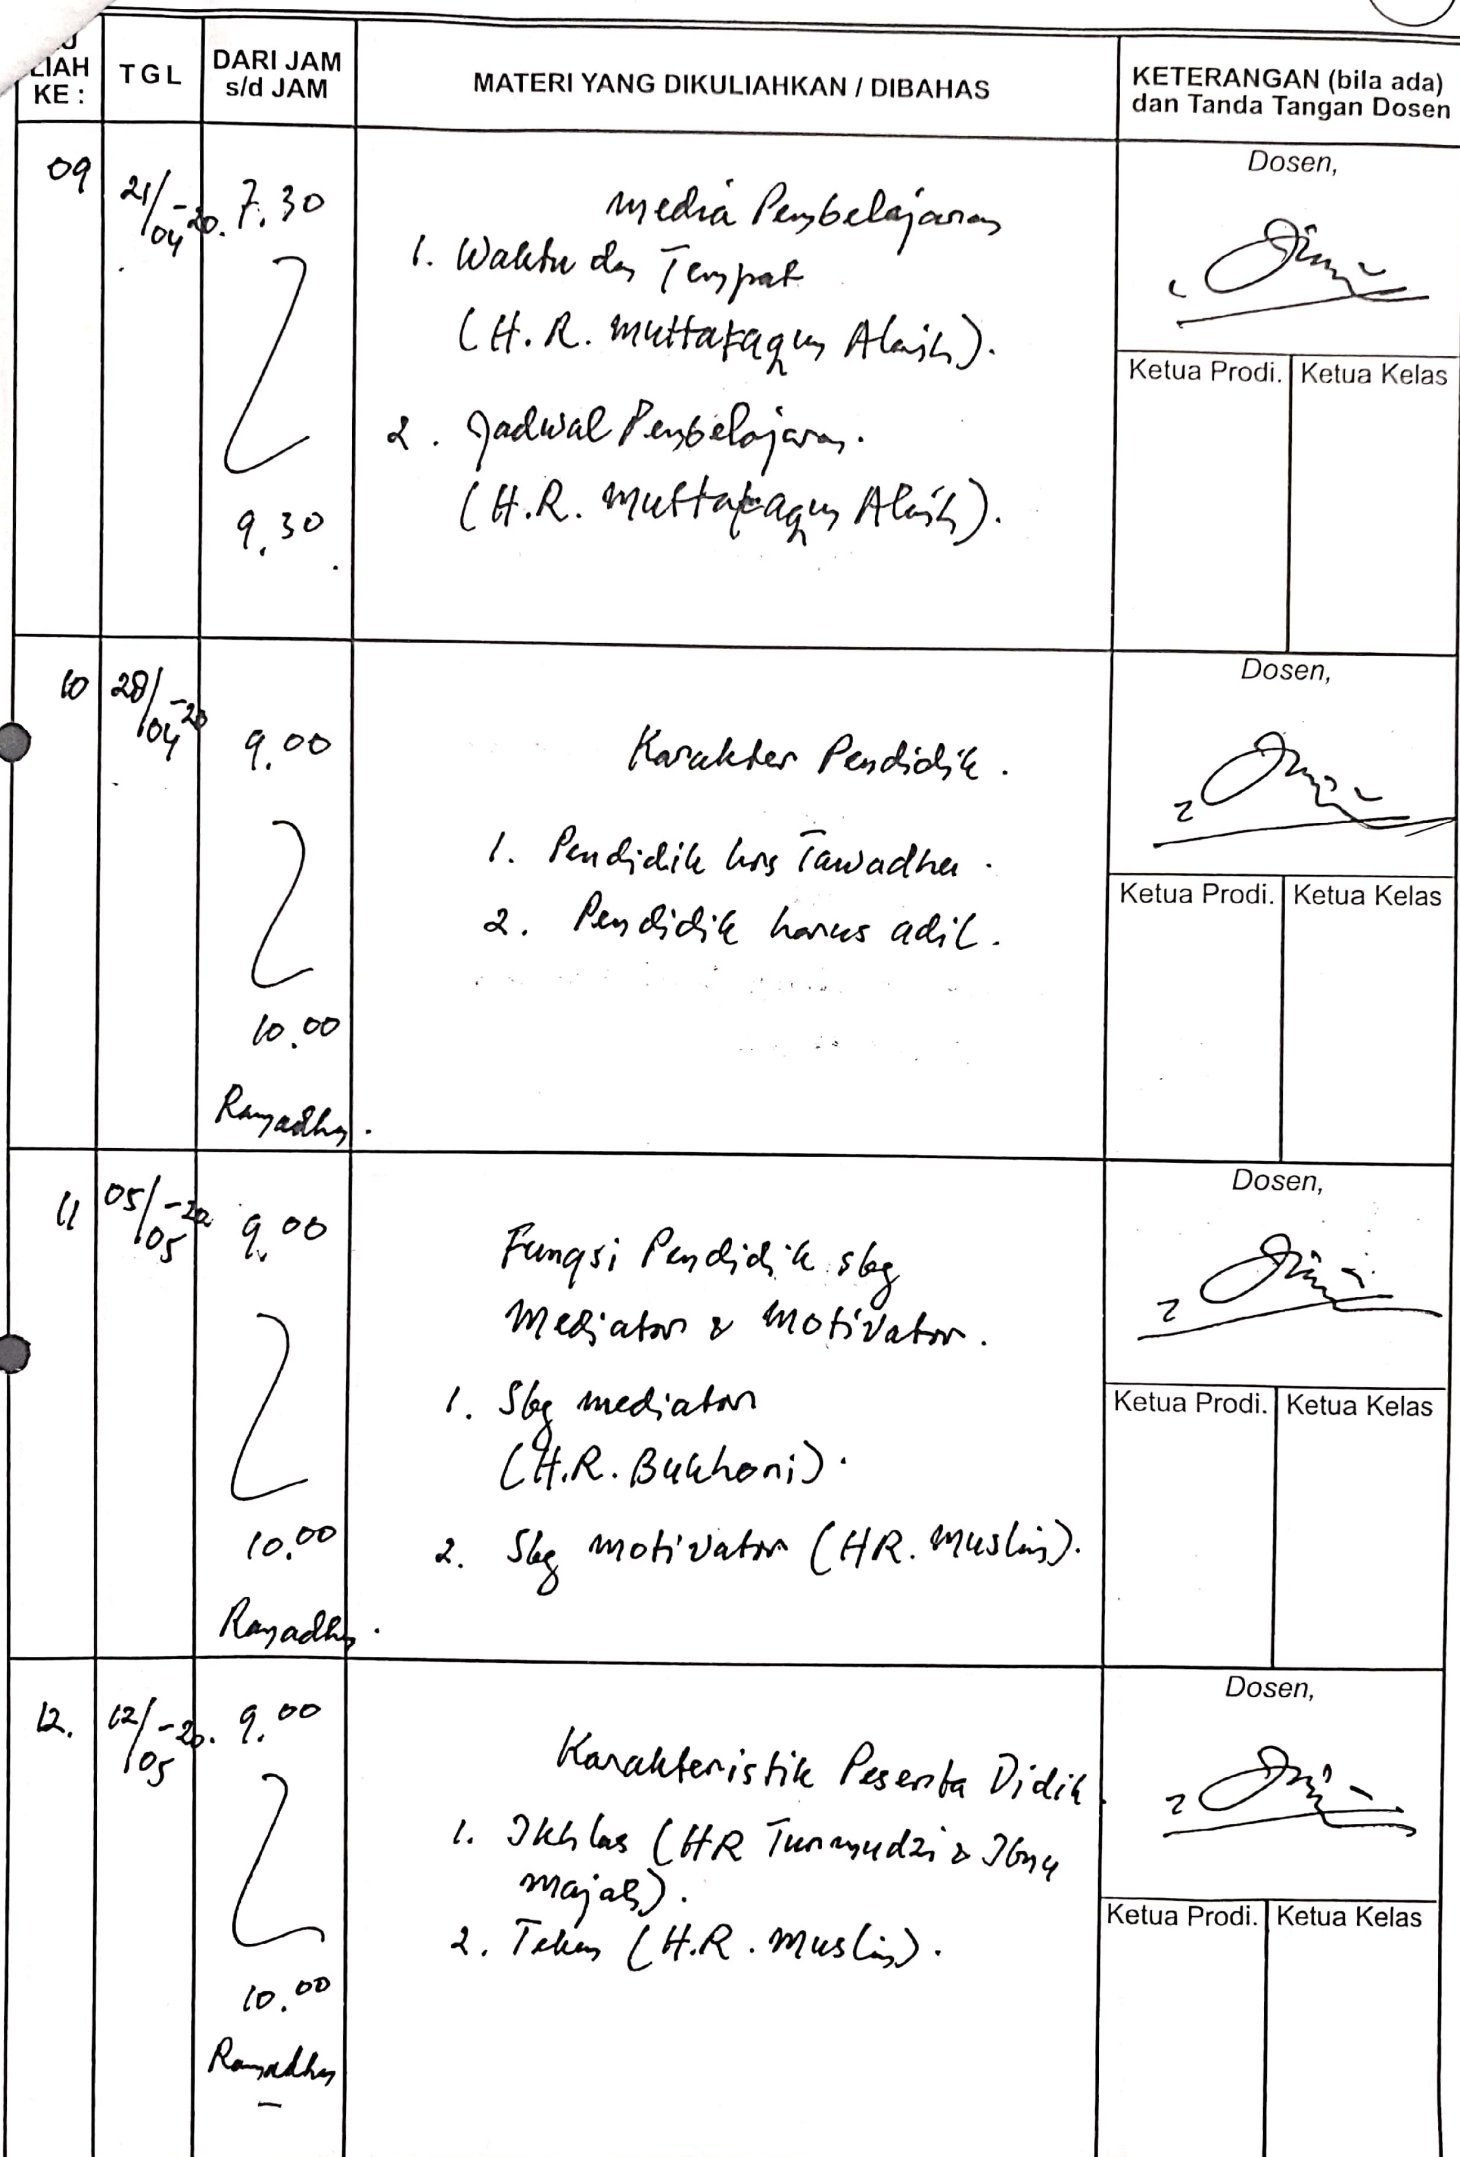 LIAH
KE :
TGL
DARI JAM
s/d JAM
MATERI YANG DIKULIAHKAN / DIBAHAS
KETERANGAN (bila ada)
dan Tanda Tangan Dosen
09
21/04-20.
7.30
9.30
Media Pembelajaran
1. Waktu dan Tempat
(H.R. Muttafaqun Alaih).
2. Jadwal Pembelajaran.
(H.R. Muttafaqun Alaih).
Dosen,
Ketua Prodi.
Ketua Kelas
10
28/04-20
9.00
10.00
Ramadhan.
Karakter Pendidik.
1. Pendidik hrs Tawadhu.
2. Pendidik harus adil.
Dosen,
Ketua Prodi.
Ketua Kelas
11
05/05-20
9.00
10.00
Ramadhan.
Fungsi Pendidik sbg
Mediator & Motivator.
1. Sbg mediator
(H.R. Bukhori).
2. Sbg motivator (HR. Muslim).
Dosen,
Ketua Prodi.
Ketua Kelas
12.
12/05-20.
9.00
10.00
Ramadhan
Karakteristik Peserta Didik.
1. Ikhlas (HR Turmudzi & Ibnu
Majah).
2. Tekun (H.R. Muslim).
Dosen,
Ketua Prodi.
Ketua Kelas